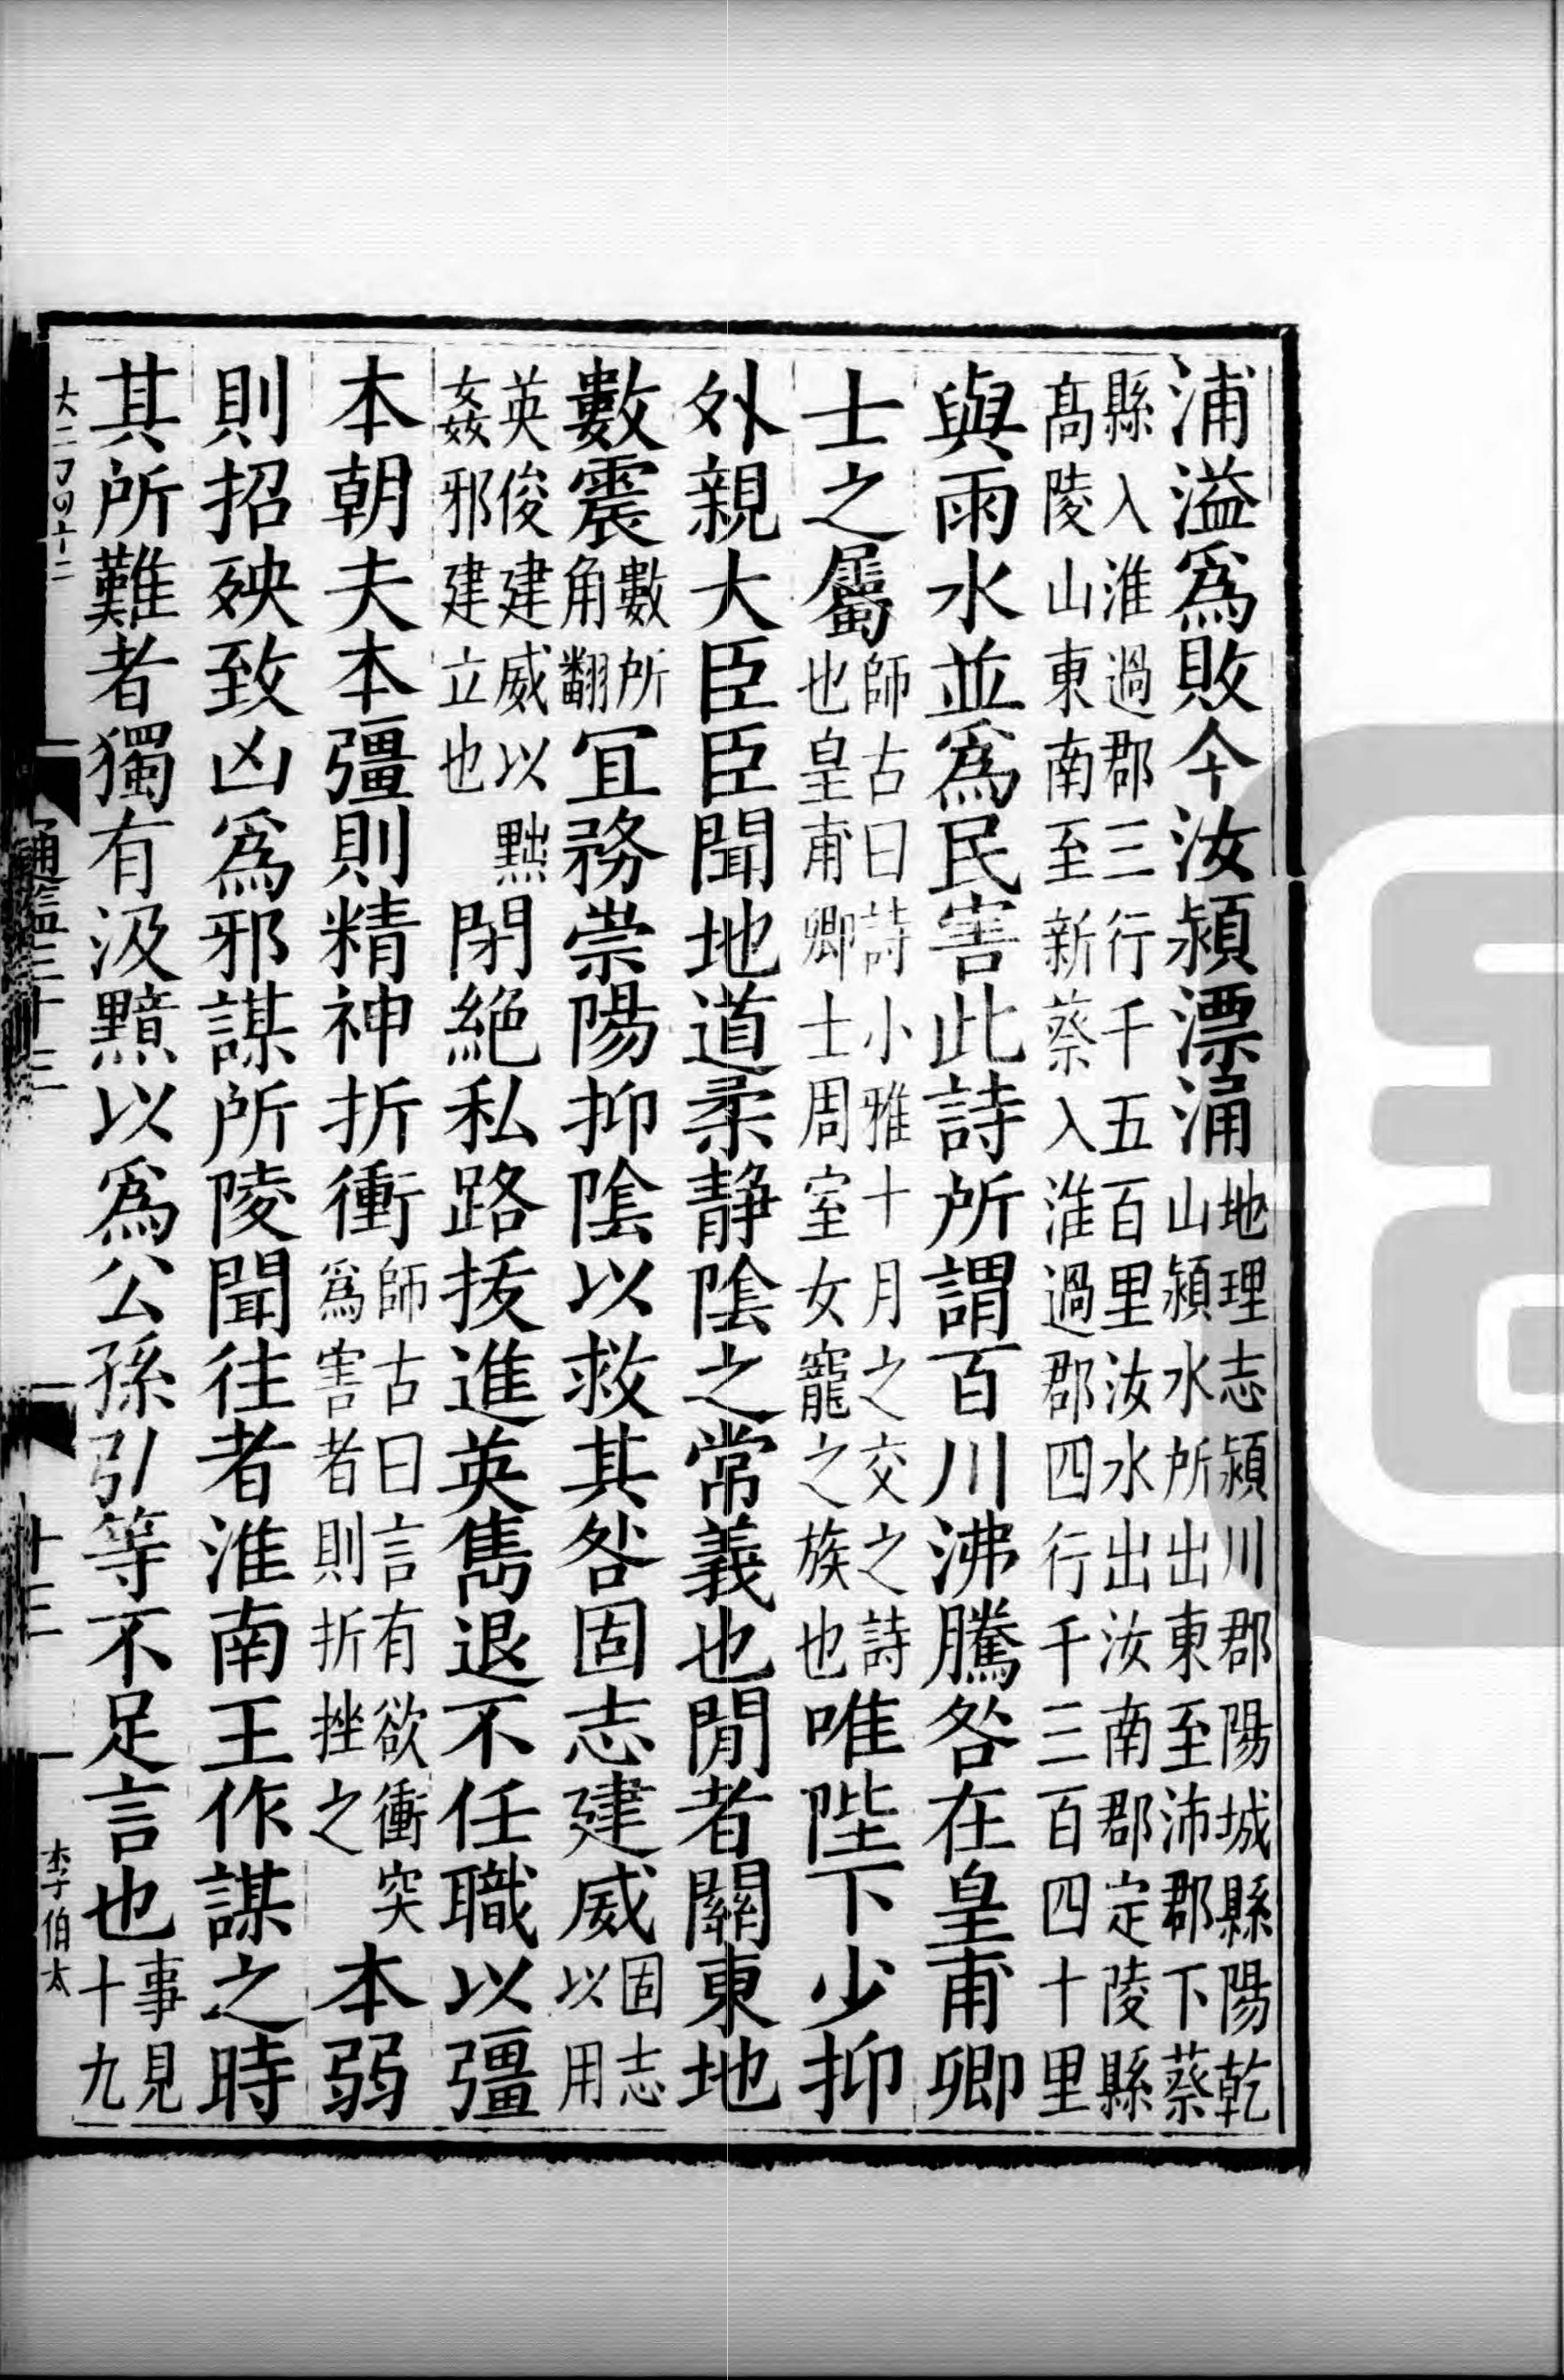 浦溢爲敗今汝潁漂涌地理志潁川郡陽城縣陽乾山潁水所出東至沛郡下蔡
縣入淮過郡三行千五百里汝水出汝南郡定陵縣髙陵山東南至新蔡入淮過郡四行千三百四十里
與雨水並爲民害此詩所謂百川沸騰咎在皇甫卿
士之屬師古曰詩小雅十月之交之詩也皇甫卿士周室女寵之族也唯陛下少抑
外親大臣臣聞地道柔静隂之常義也閒者關東地
數震數所角翻宜務崇陽抑隂以救其咎固志建威固志以用
英俊建威以黜姦邪建立也閉絶私路拔進英雋退不任職以彊
本朝夫本彊則精神折衝師古曰言有欲衝突爲害者則折挫之本弱
則招殃致凶爲邪謀所陵聞往者淮南王作謀之時
其所難者獨有汲黯以爲公孫引等不足言也事見十九
通鑑三十三
十三
李伯太